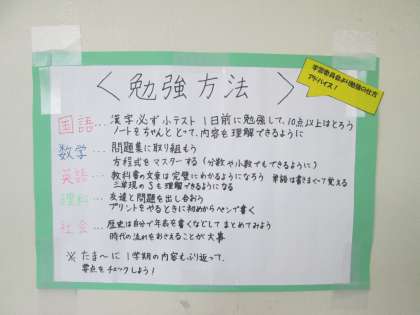 学習委員会より勉強の仕方
アドバイス！
〈勉強方法〉
国語…漢字必ず小テスト1日前に勉強して、10点以上はとろう
ノートをちゃんととって、内容を理解できるように
数学…問題集に取り組もう
方程式をマスターする(分数や小数でもできるように)
英語…教科書の文章は完璧にわかるようになろう 単語は書きまくって覚える
三単現のSも理解できるようになる
理科…友達と問題を出し合おう
プリントをやるときに初めからペンで書く
社会…歴史は自分で年表を書くなどしてまとめてみよう
時代の流れをおさえることが大事
※たま〜に1学期の内容もふり返って、
零点をチェックしよう！